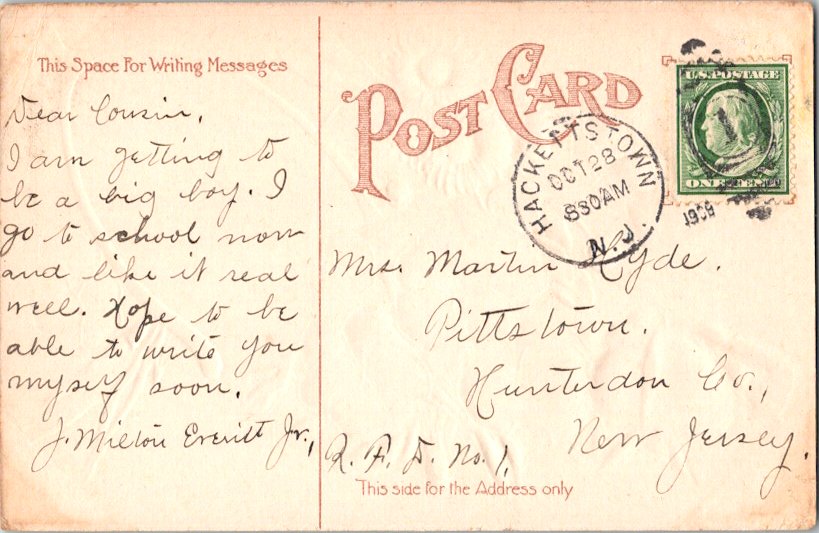 This Space For Writing Messages
POST CARD
Dear Cousin,
I am getting to
be a big boy. I
go to school now
and like it real
well. Hope to be
able to write you
myself soon.
J. Milton Everitt Jr.,
U.S. POSTAGE
1
HACKETTSTOWN
OCT 28
830AM
N.J.
Mrs. Martin Hyde.
Pittstown.
Hunterdon Co.,
New Jersey.
R. F. D. No. 1,
This side for the Address only